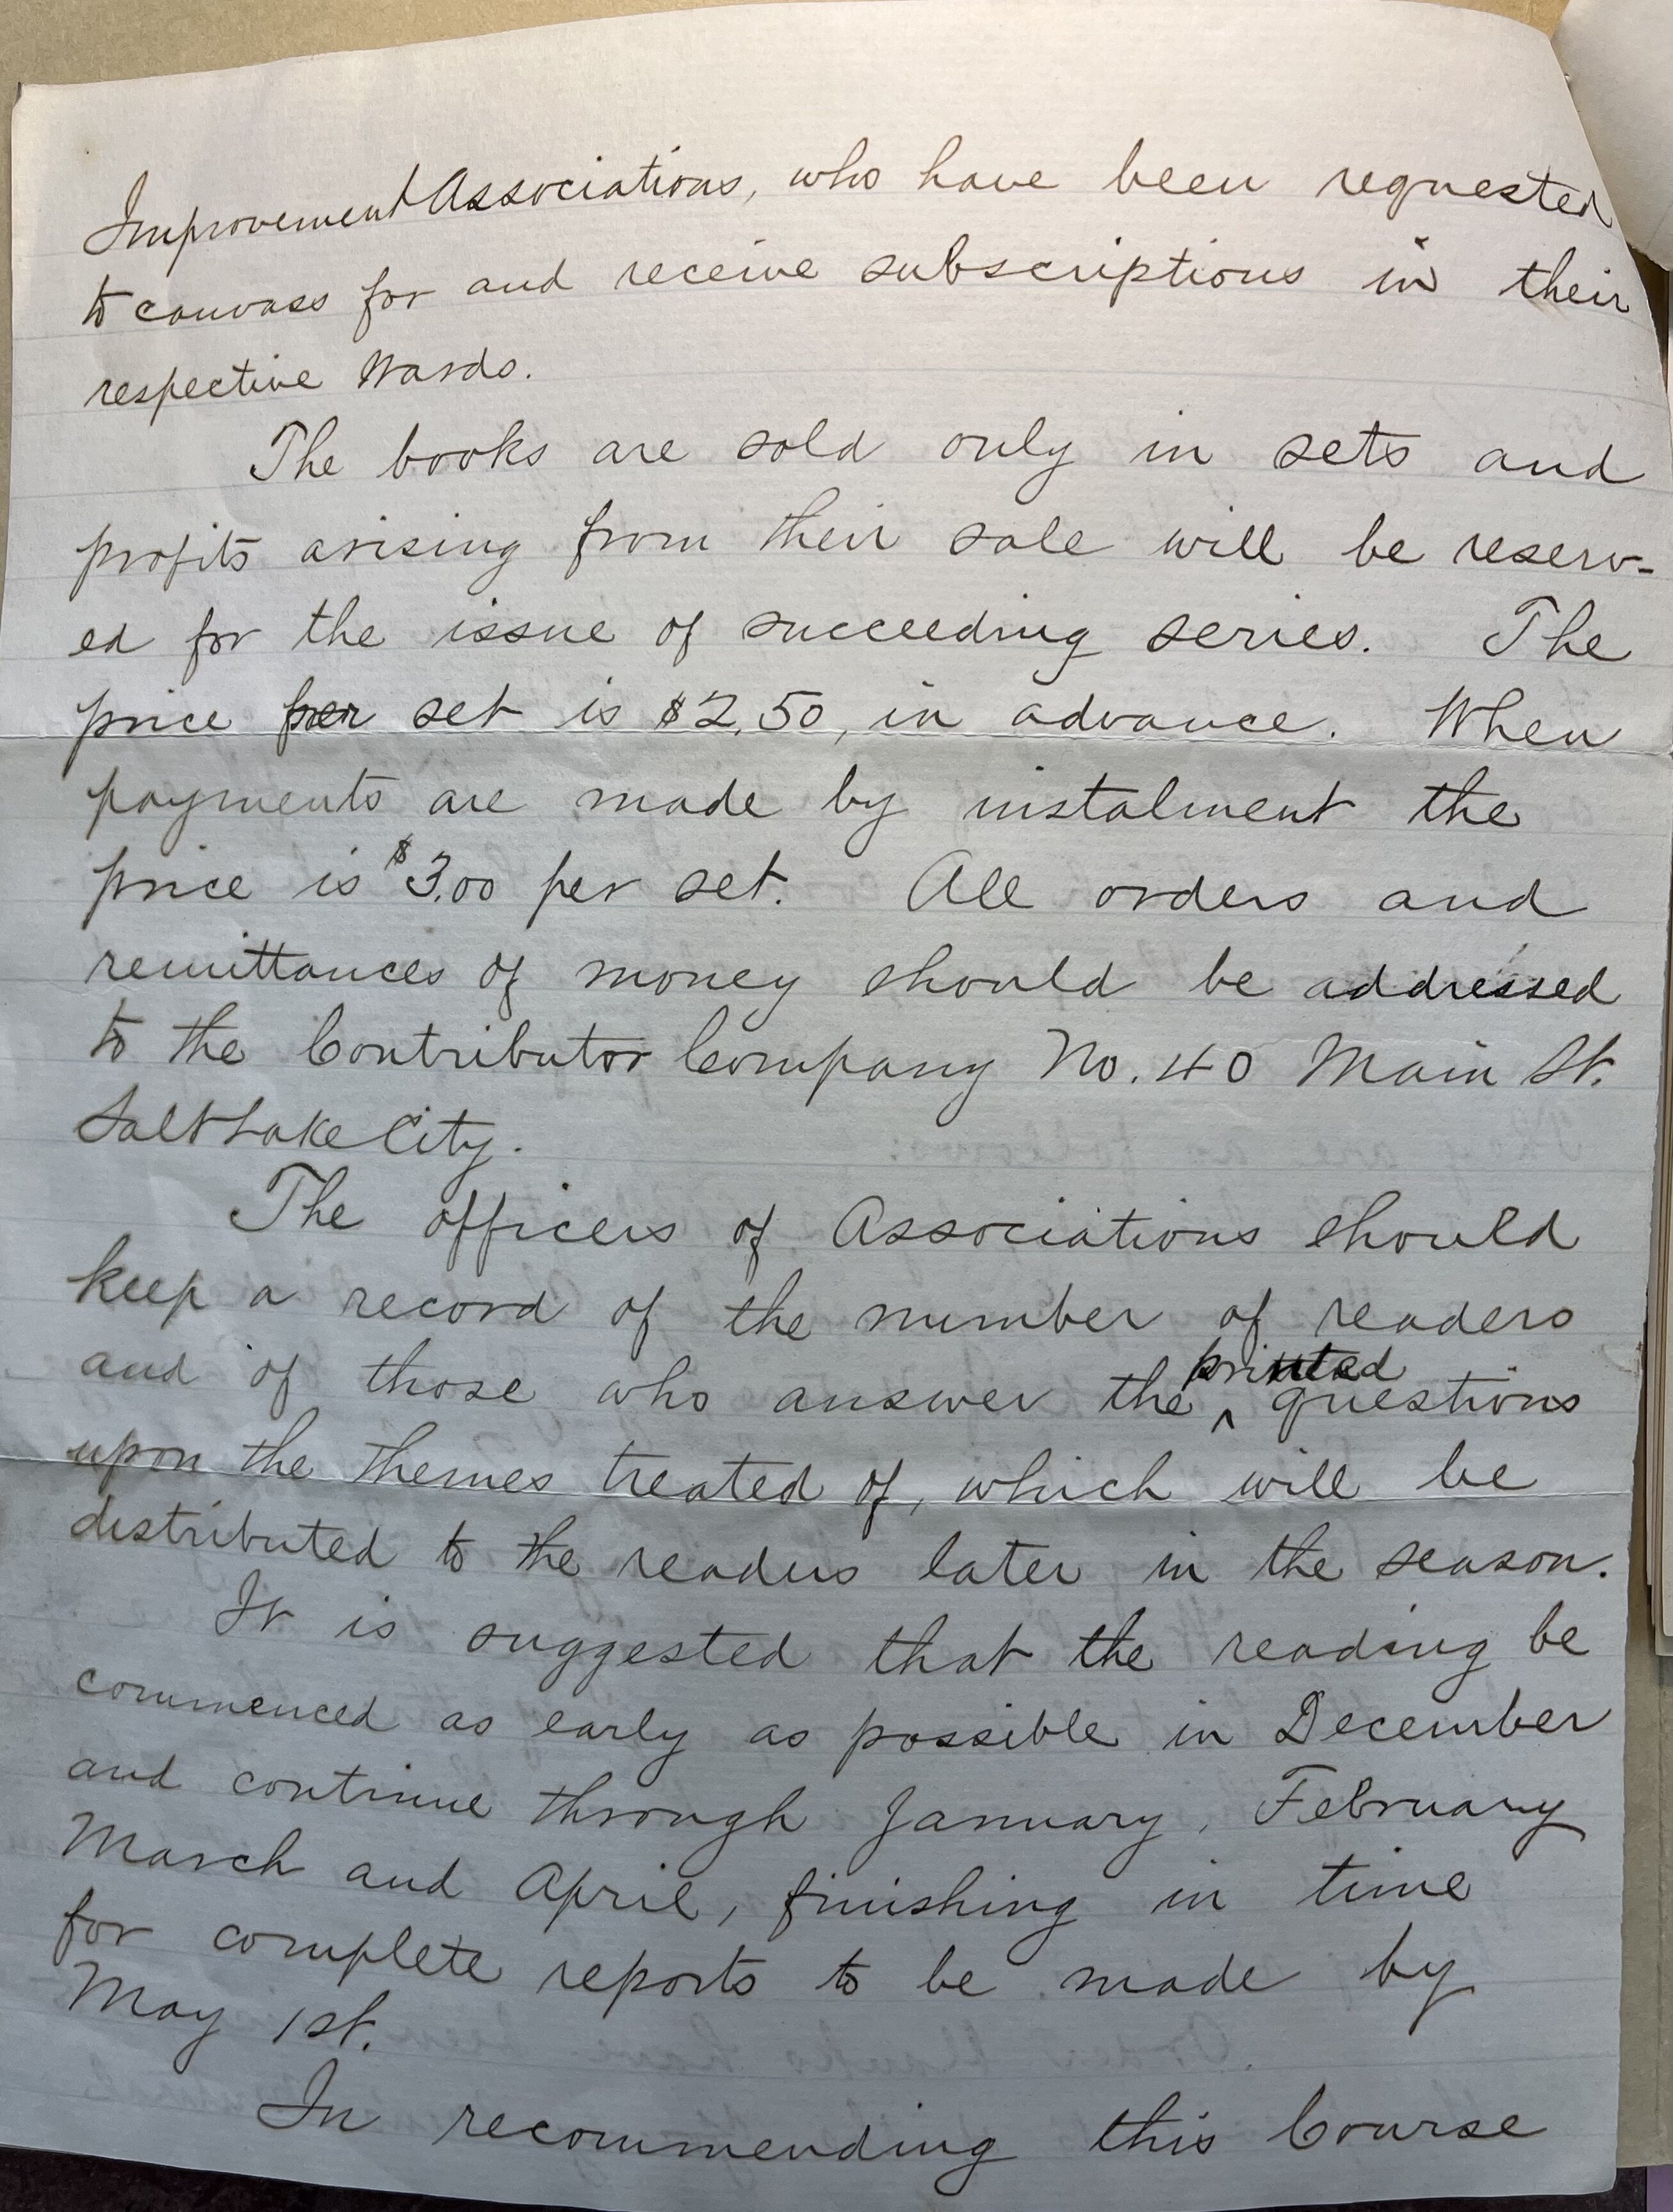 Improvement Associations, who have been requested
to canvass for and receive subscriptions in their
respective Wards.
The books are sold only in sets and
profits arising from their sale will be reserv-
ed for the issue of succeeding series. The
price per set is $2.50, in advance. When
payments are made by instalment the
price is $3.00 per set. All orders and
remittances of money should be addressed
to the Contributor Company No. 40 Main St.
Salt Lake City.
The officers of Associations should
keep a record of the number of readers
and of those who answer the ^ printed questions
upon the themes treated of, which will be
distributed to the readers later in the season.
It is suggested that the reading be
commenced as early as possible in December
and continue through January, February
March and April, finishing in time
for complete reports to be made by
May 1st.
In recommending this Course